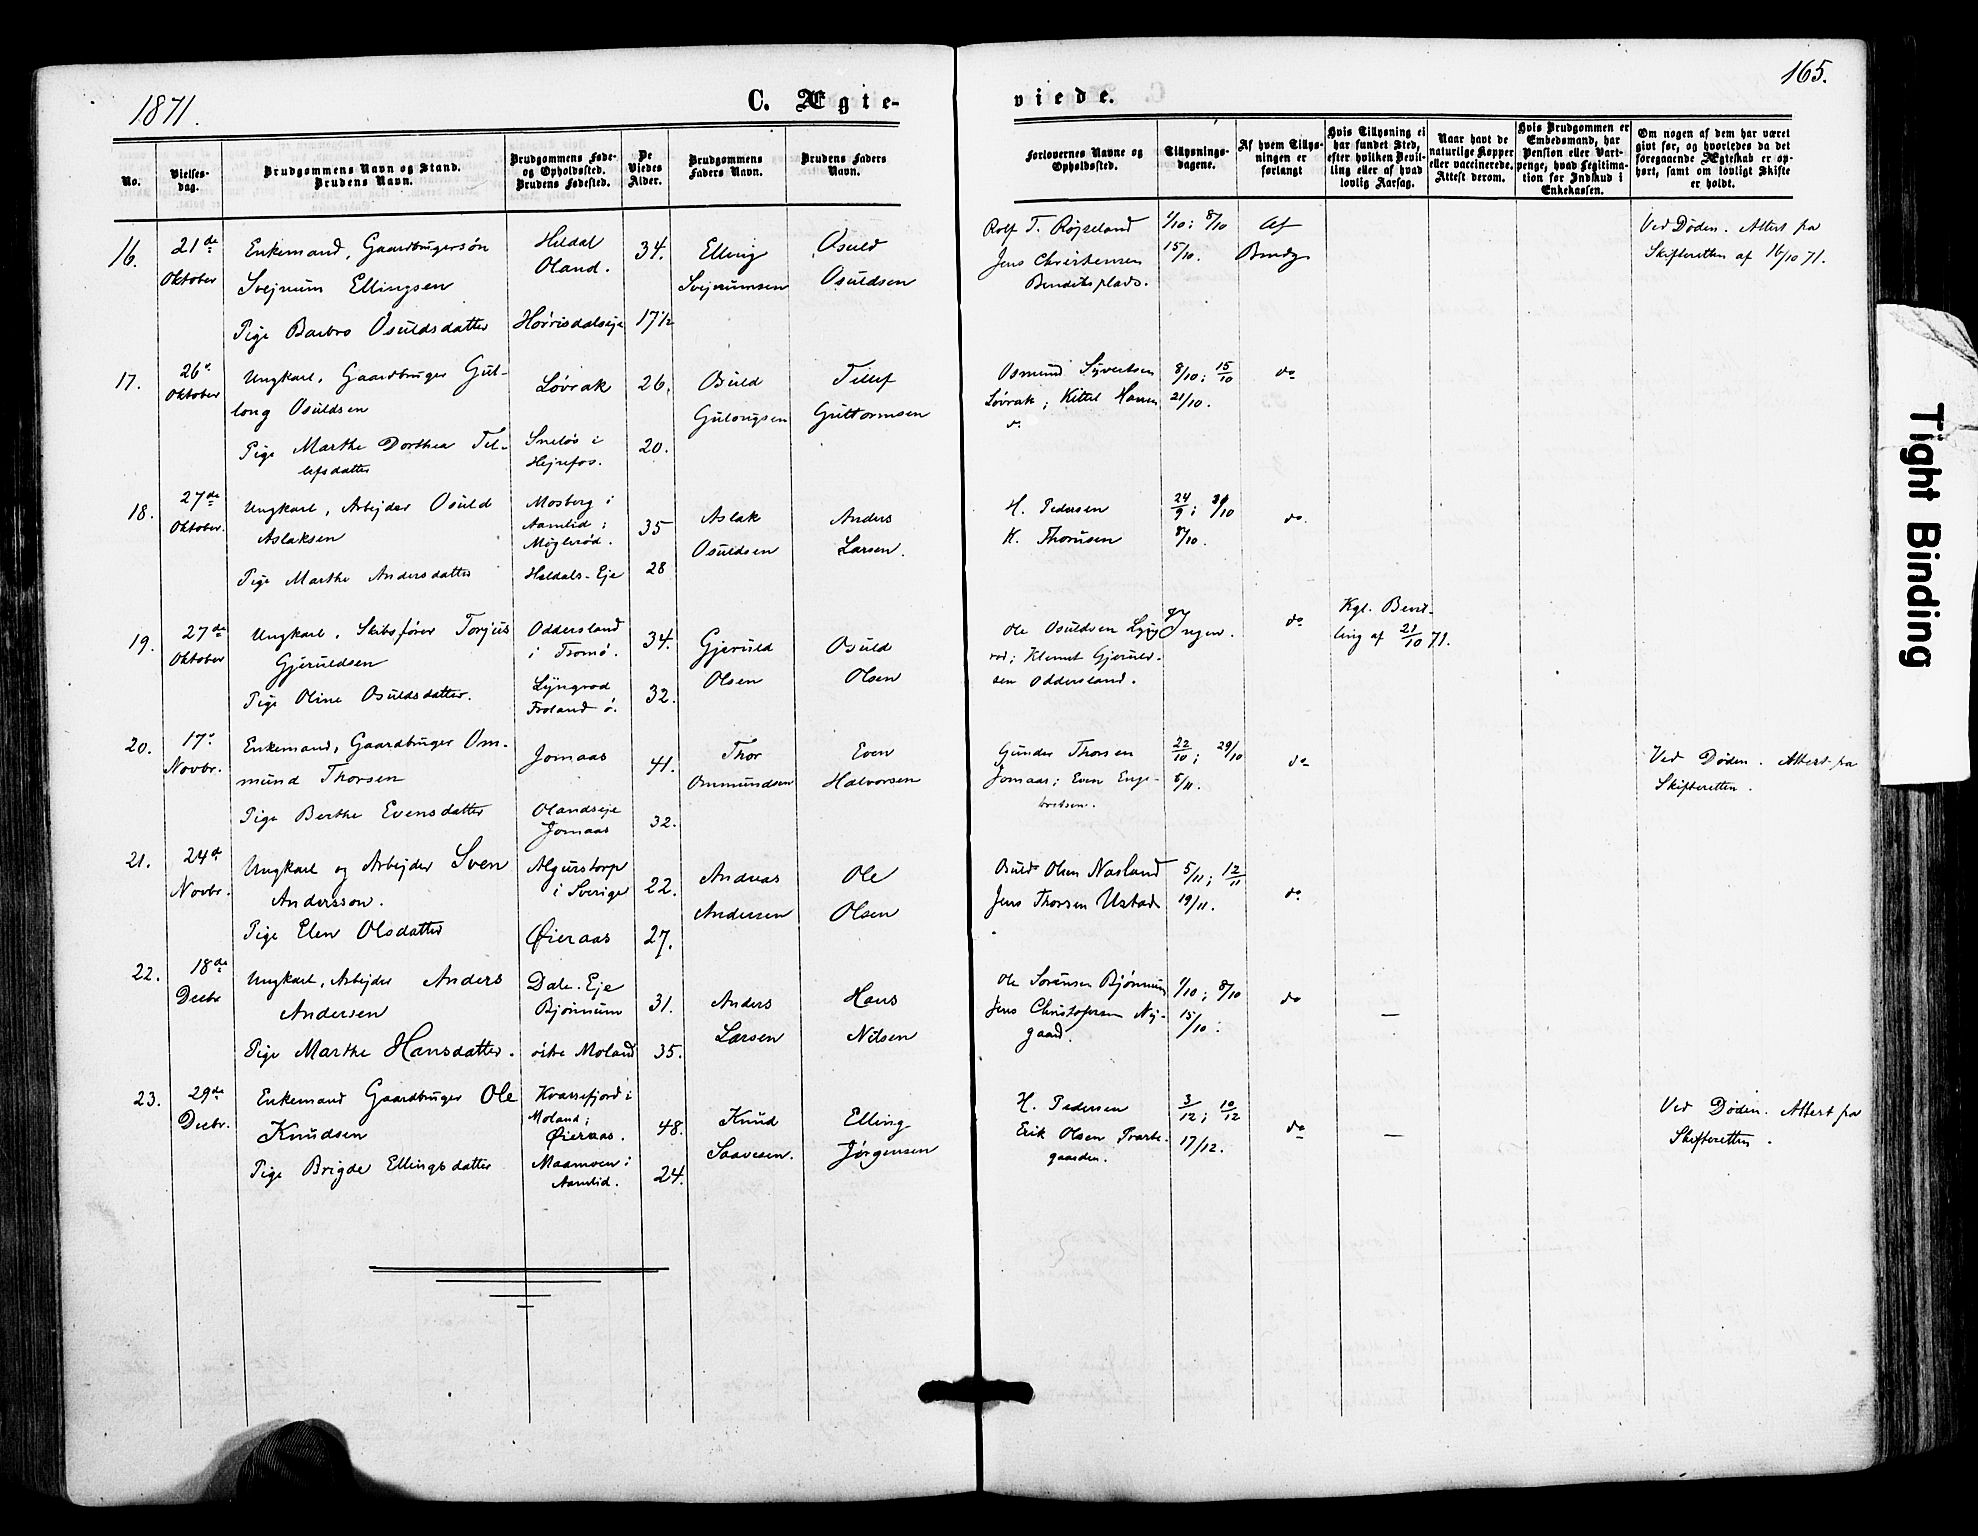 1871.
C. Ægte-
viede.
165.
No.
Vielses-
dag.
Brudgommens Navn og Stand.
Brudens Navn.
Brudgommens Føde-
og Opholdssted.
Brudens Fødested.
De
Viedes
Alder.
Brudgommens
Faders Navn.
Brudens Faders
Navn.
Forlovernes Navne og
Opholdssted.
Tillysnings-
dagene.
Af hvem Tillys-
ningen er
forlangt
Hvis Tillysning ei
har fundet Sted,
efter hvilken Bevil-
ling eller af hvad
lovlig Aarsag.
Naar havt de
naturlige Kopper
eller vaccinerede.
Attest derom.
Hvis Brudgommen er
Embedsmand, har
Pension eller Vart-
penge, hvad Legitima-
tion for Indskud i
Enkekassen.
Om nogen af dem har været
gift før, og hvorledes da det
foregaaende Ægteskab er op-
hørt, samt om lovligt Skifte
er holdt.
16.
21de
Oktober
Enkemand, Gaardbrugersøn
Svejnum Ellingsen
Pige Barbro Osuldsdatter
Hildal
Oland.
Hørrisdalseje
34.
17½
Elling
Svejnumsen
Osuld
Osuldsen
Rolf T. Røjseland
Jens Christensen
Bendiksplads.
1/10; 8/10
15/10.
Af
Brudg.
Ved Døden. Attest fra
Skifteretten af 16/10 71.
17.
26de
Oktober
Ungkarl, Gaardbruger Gul-
long Osuldsen
Pige Marthe Dorthea Til-
lefsdatter
Løvrak
Sneløs i
Hejrefos.
26.
20.
Osuld
Gulongsen
Tellef
Guttormsen
Osmund Syvertsen
Løvrak; Kittel Hansen
do
8/10; 15/10
21/10.
do
18.
27de
Oktober.
Ungkarl, Arbejder Osuld
Aslaksen
Pige Marthe Andersdatter
Mosberg i
Aamlid;
Møglerød.
Haldals-Eje
35
28
Aslak
Osuldsen
Anders
Larsen.
H. Pedersen
K. Thorusen
24/9; 1/10
8/10.
do.
19.
27de
Oktober
Ungkarl, Skibsfører Torjus
Gjeruldsen
Pige Oline Osuldsdatter.
Oddersland
i Tromø.
Lyngrod
Froland s.
34.
32.
Gjeruld
Olsen
Osuld
Olsen
Ole Osuldsen Lyng-
rod; Klemet Gjeruld-
sen Oddersland.
Ingen.
do
Kgl. Bevil-
ling af 21/10 71.
20.
17de
Novbr.
Enkemand, Gaardbruger Om-
mund Thorsen
Pige Berthe Evensdatter
Jomaas
Olandseje
Jomaas
41.
32.
Thor
Ommundsen
Even
Halvorsen
Gunder Thorsen
Jomaas; Even Enge-
bretsen.
22/10; 29/10
5/11.
do
Ved Døden. Attest fra
Skifteretten.
21.
24de
Novbr.
Ungkarl og Arbejder Sven
Andersson.
Pige Elen Olsdatter
Algurstorp
i Sverige
Øieraas
22.
27.
Andreas
Andersen
Ole
Olsen
Osuld Olsen Nasland
Jens Thorsen Ustad
5/11; 12/11
19/11.
do
22.
18de
Decbr
Ungkarl, Arbejder Anders
Andersen
Pige Marthe Hansdatter.
Dale-Eje
Bjønnum
østre Moland
31.
35.
Anders
Larsen
Hans
Nilsen
Ole Sørensen Bjønnum
Jens Christofersen Ny-
gaard.
1/10; 8/10
15/10.
do
—
23.
29de
Decbr.
Enkemand Gaardbruger Ole
Knudsen
Pige Brigde Ellingsdatter
Kvassefjord i
Moland;
Øieraas.
Maamoen i
Aamlid.
48.
24.
Knud
Saavesen.
Elling
Jørgensen
H. Pedersen
Erik Olsen Præste-
gaarden.
3/12; 10/12
17/12.
do
—
Ved Døden. Attest fra
Skifteretten.
Tight Binding